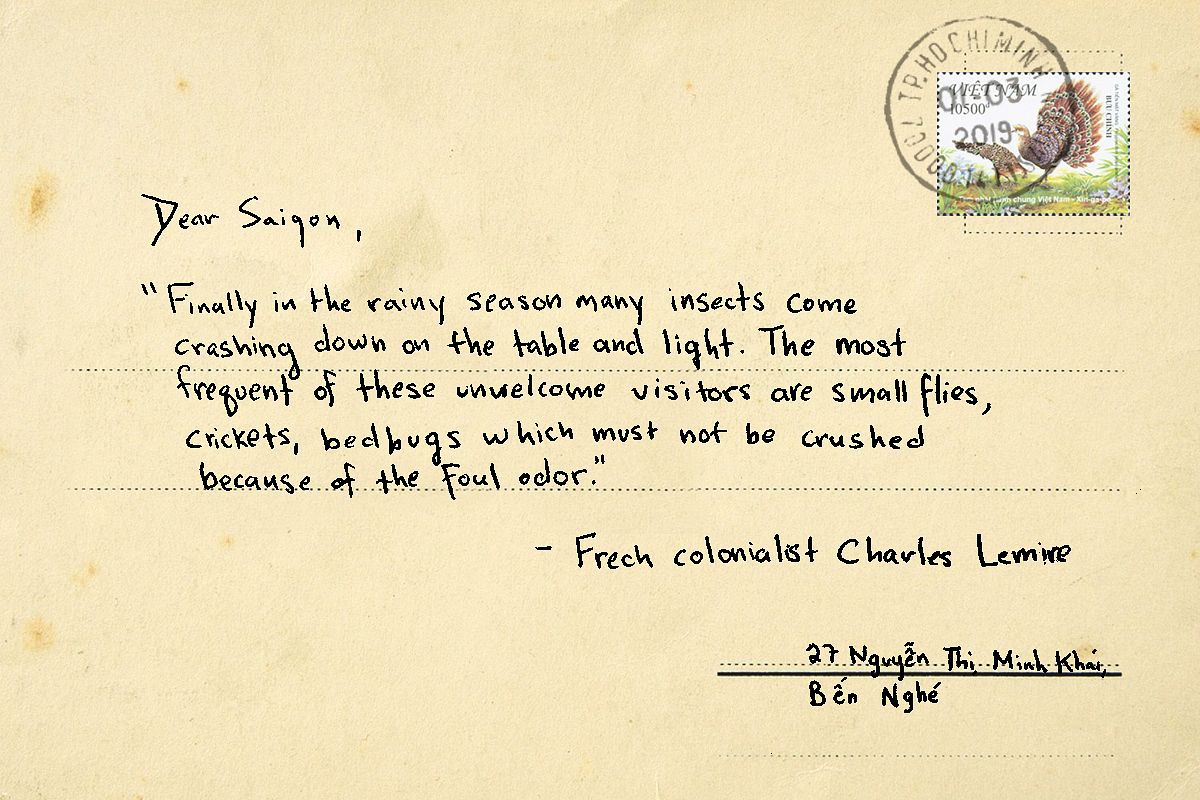 TP.HO CHI MINH
01-03
2019
VIỆT NAM
10500đ
BƯU CHÍNH
chung Việt Nam - Xin-ga-po
Dear Saigon,
"Finally in the rainy season many insects come
crashing down on the table and light. The most
frequent of these unwelcome visitors are small flies,
crickets, bedbugs which must not be crushed
because of the foul odor."
- Frech colonialist Charles Lemire
27 Nguyễn Thị Minh Khai,
Bến Nghé